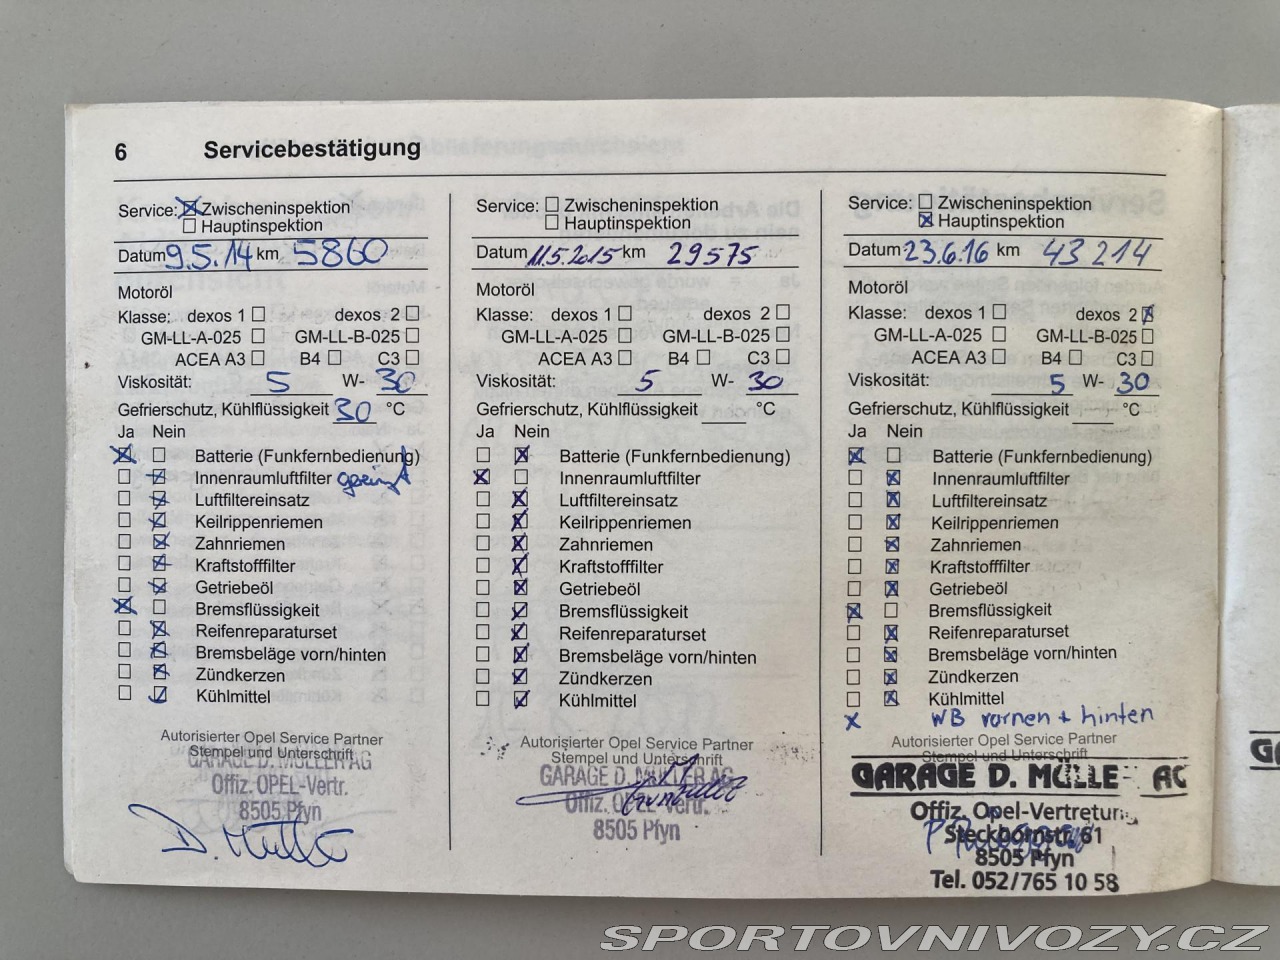 6 Servicebestätigung
Service: Zwischeninspektion
Hauptinspektion
Datum 9.5.14 km 5860
Motoröl
Klasse: dexos 1 dexos 2
GM-LL-A-025 GM-LL-B-025
ACEA A3 B4 C3
Viskosität: 5 W- 30
Gefrierschutz, Kühlflüssigkeit 30 °C
Ja Nein
Batterie (Funkfernbedienung)
Innenraumluftfilter
Luftfiltereinsatz
Keilrippenriemen
Zahnriemen
Kraftstofffilter
Getriebeöl
Bremsflüssigkeit
Reifenreparaturset
Bremsbeläge vorn/hinten
Zündkerzen
Kühlmittel
Autorisierter Opel Service Partner
Stempel und Unterschrift
GARAGE D. MÜLLER AG
Offiz. OPEL-Vertr.
8505 Pfyn
D. Müller
Service: Zwischeninspektion
Hauptinspektion
Datum 11.5.2015 km 29575
Motoröl
Klasse: dexos 1 dexos 2
GM-LL-A-025 GM-LL-B-025
ACEA A3 B4 C3
Viskosität: 5 W- 30
Gefrierschutz, Kühlflüssigkeit °C
Ja Nein
Batterie (Funkfernbedienung)
Innenraumluftfilter
Luftfiltereinsatz
Keilrippenriemen
Zahnriemen
Kraftstofffilter
Getriebeöl
Bremsflüssigkeit
Reifenreparaturset
Bremsbeläge vorn/hinten
Zündkerzen
Kühlmittel
Autorisierter Opel Service Partner
Stempel und Unterschrift
GARAGE D. MÜLLER AG
Offiz. OPEL-Vertr.
8505 Pfyn
Service: Zwischeninspektion
Hauptinspektion
Datum 23.6.16 km 43214
Motoröl
Klasse: dexos 1 dexos 2
GM-LL-A-025 GM-LL-B-025
ACEA A3 B4 C3
Viskosität: 5 W- 30
Gefrierschutz, Kühlflüssigkeit °C
Ja Nein
Batterie (Funkfernbedienung)
Innenraumluftfilter
Luftfiltereinsatz
Keilrippenriemen
Zahnriemen
Kraftstofffilter
Getriebeöl
Bremsflüssigkeit
Reifenreparaturset
Bremsbeläge vorn/hinten
Zündkerzen
Kühlmittel
x WB vornen + hinten
Autorisierter Opel Service Partner
Stempel und Unterschrift
GARAGE D. MÜLLE AG
Offiz. Opel-Vertretung
Steckbornstr. 61
8505 Pfyn
Tel. 052/765 10 58
SPORTOVNIVOZY.CZ